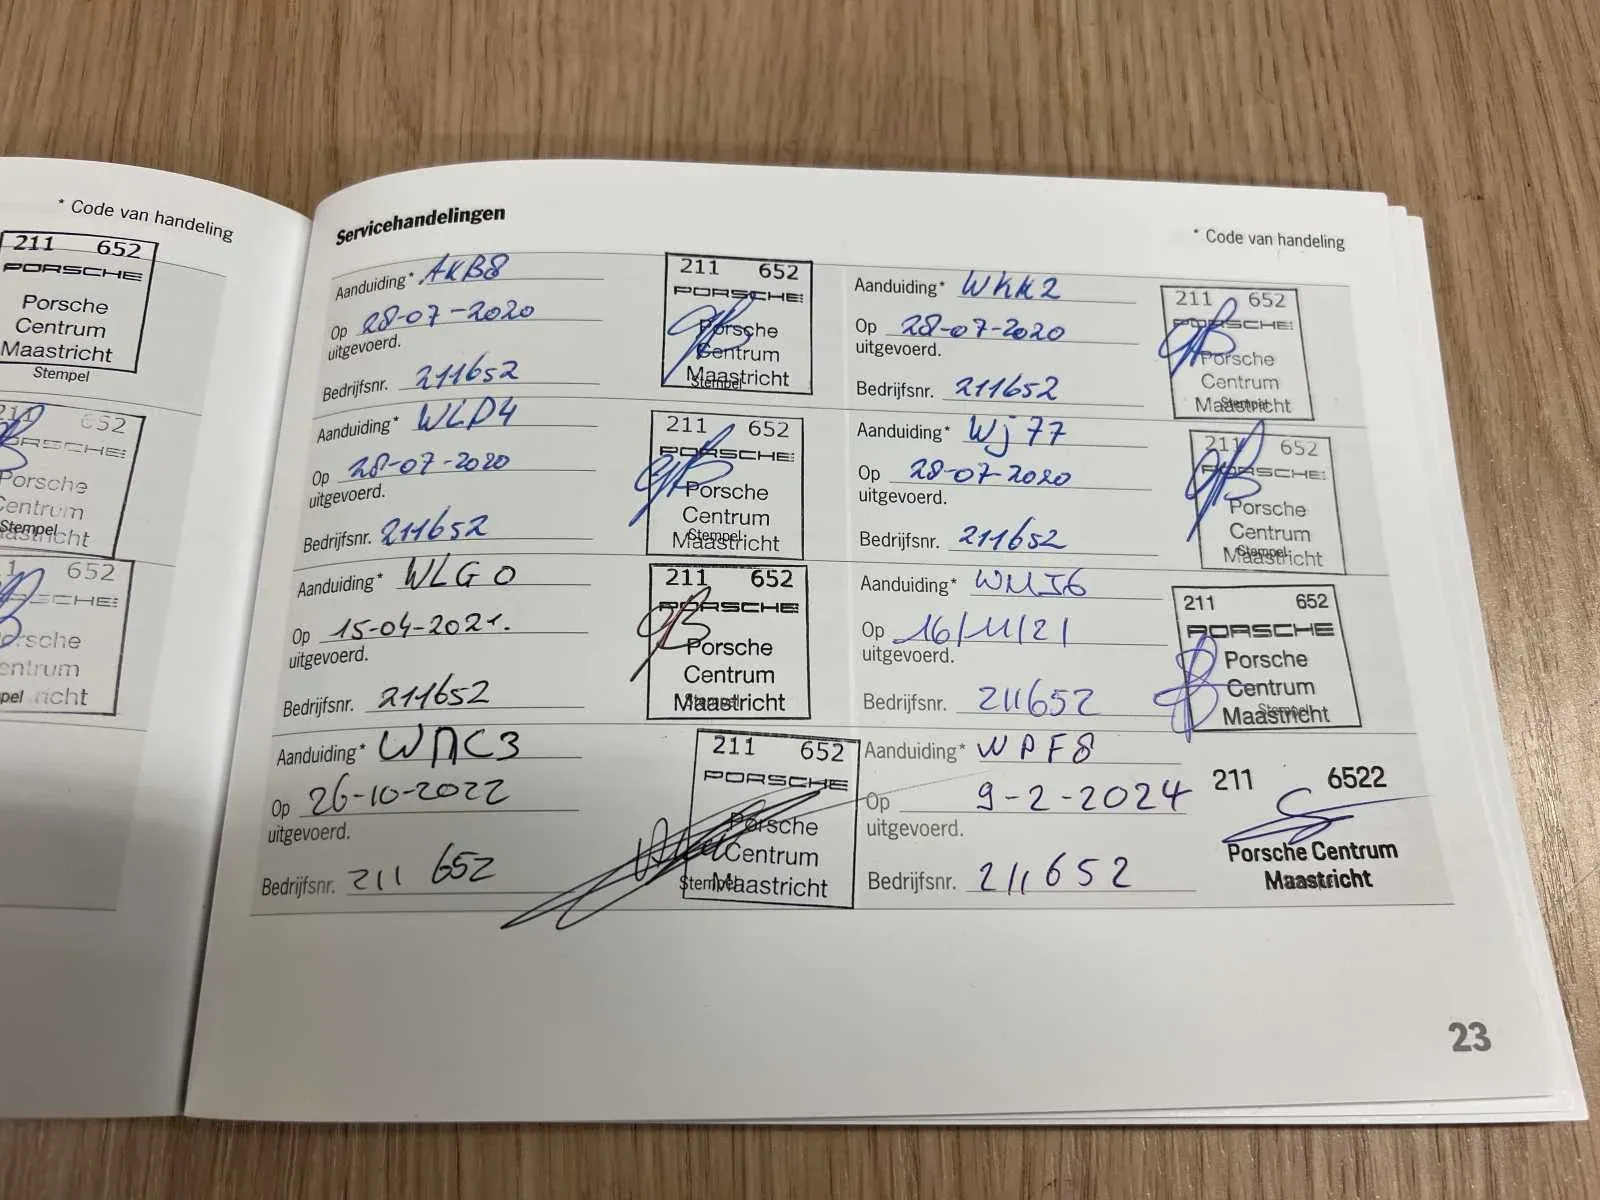 * Code van handeling
211 652
PORSCHE
Porsche
Centrum
Maastricht
Stempel
652
Porsche
Centrum
Stempel
652
Stempel
Servicehandelingen
* Code van handeling
Aanduiding* AKB8
Op 28-07-2020
uitgevoerd.
Bedrijfsnr. 211652
211 652
PORSCHE
Porsche
Centrum
Maastricht
Stempel
Aanduiding* WKK2
Op 28-07-2020
uitgevoerd.
Bedrijfsnr. 211652
211 652
PORSCHE
Porsche
Centrum
Maastricht
Stempel
Aanduiding* WLD4
Op 28-07-2020
uitgevoerd.
Bedrijfsnr. 211652
211 652
PORSCHE
Porsche
Centrum
Maastricht
Stempel
Aanduiding* Wj77
Op 28-07-2020
uitgevoerd.
Bedrijfsnr. 211652
211 652
PORSCHE
Porsche
Centrum
Maastricht
Stempel
Aanduiding* WLG0
Op 15-04-2021.
uitgevoerd.
Bedrijfsnr. 211652
211 652
PORSCHE
Porsche
Centrum
Maastricht
Stempel
Aanduiding* WMI6
Op 16/11/21
uitgevoerd.
Bedrijfsnr. 211652
211 652
PORSCHE
Porsche
Centrum
Maastricht
Stempel
Aanduiding* WMC3
Op 26-10-2022
uitgevoerd.
Bedrijfsnr. 211 652
211 652
PORSCHE
Porsche
Centrum
Maastricht
Stempel
Aanduiding* WPF8
Op 9-2-2024
uitgevoerd.
Bedrijfsnr. 211652
211 6522
Porsche Centrum
Maastricht
23